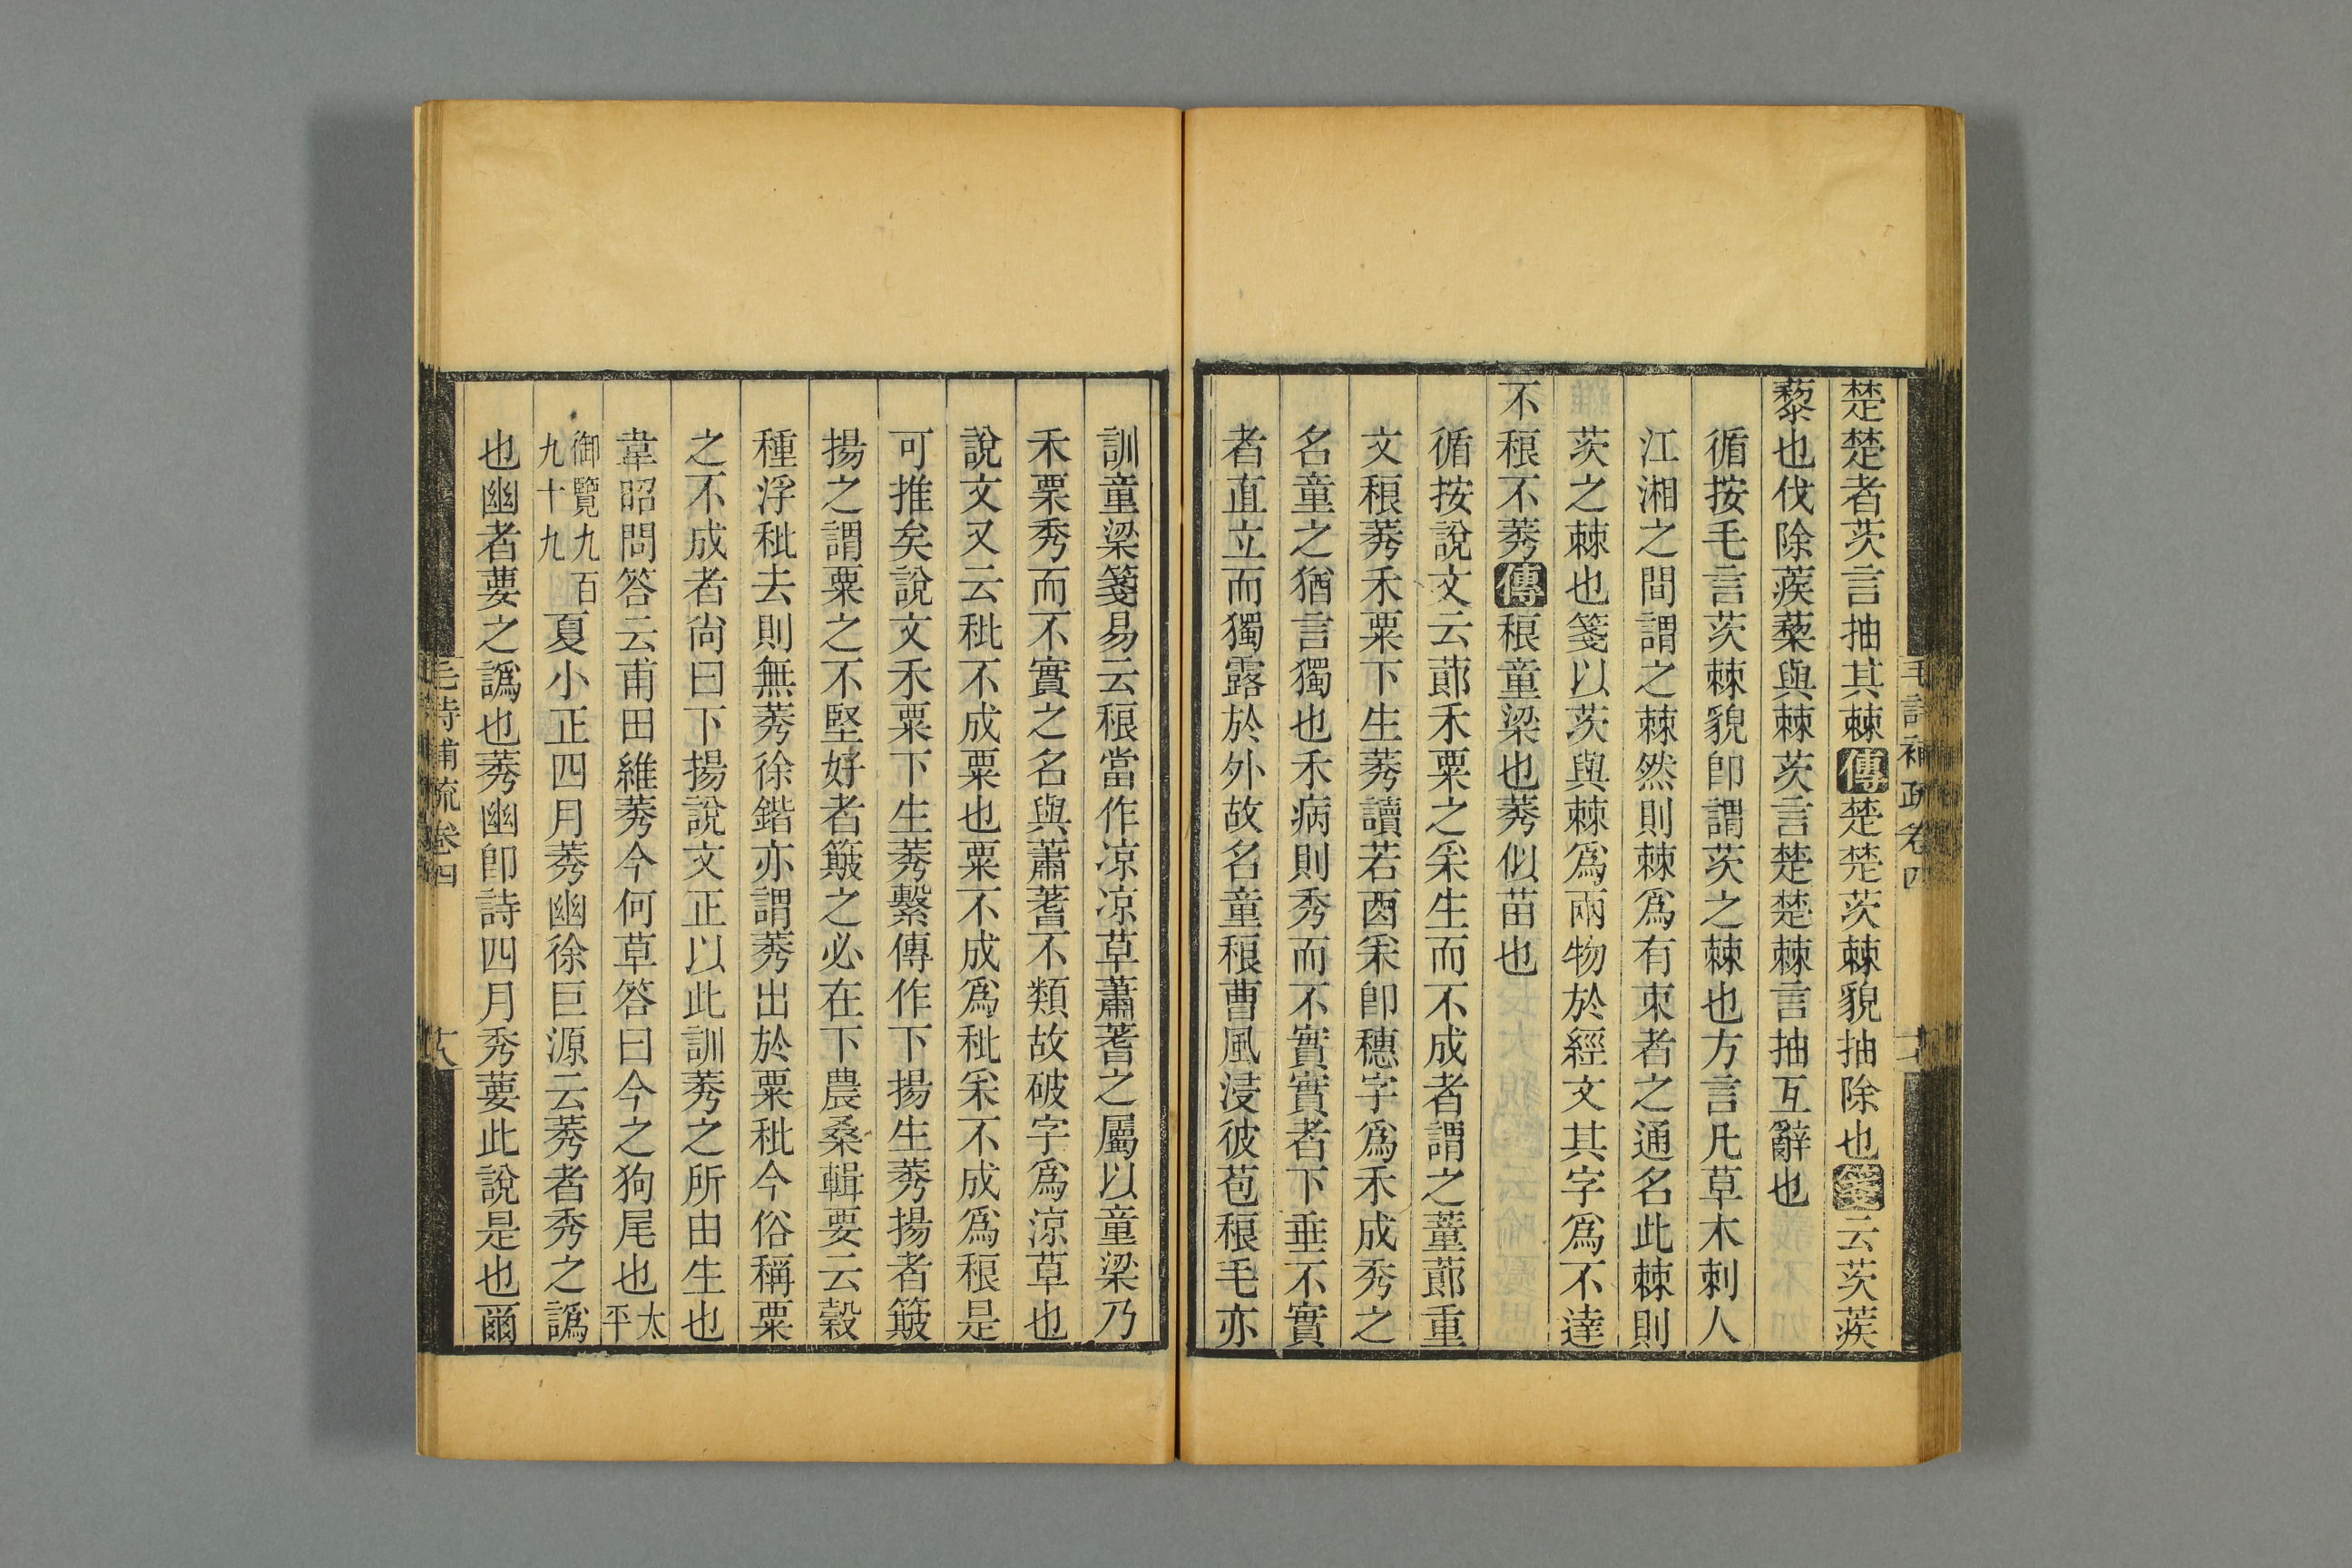 楚楚者茨言抽其棘傳楚楚茨棘貌抽除也箋云茨蒺
藜也伐除蒺藜與棘茨言楚楚棘言抽互辭也
循按毛言茨棘貌卽謂茨之棘也方言凡草木刺人
江湘之間謂之棘然則棘爲有朿者之通名此棘則
茨之棘也箋以茨與棘爲兩物於經文其字爲不達
不稂不莠傳稂童梁也莠似苗也
循按說文云蓈禾粟之采生而不成者謂之蕫蓈重
文稂莠禾粟下生莠讀若酉采卽穗字爲禾成秀之
名童之猶言獨也禾病則秀而不實實者下垂不實
者直立而獨露於外故名童稂曹風浸彼苞稂毛亦
毛詩補疏卷四
訓童梁箋易云稂當作涼涼草蕭蓍之屬以童梁乃
禾粟秀而不實之名與蕭蓍不類故破字爲涼草也
說文又云秕不成粟也粟不成爲秕采不成爲稂是
可推矣說文禾粟下生莠繫傳作下揚生莠揚者簸
揚之謂粟之不堅好者簸之必在下農桑輯要云穀
種浮秕去則無莠徐鍇亦謂莠出於粟秕今俗稱粟
之不成者尙曰下揚說文正以此訓莠之所由生也
韋昭問答云甫田維莠今何草答曰今之狗尾也太平
御覽九百九十九夏小正四月莠幽徐巨源云莠者秀之譌
也幽者葽之譌也莠幽卽詩四月秀葽此說是也爾
毛詩補疏卷四
十八